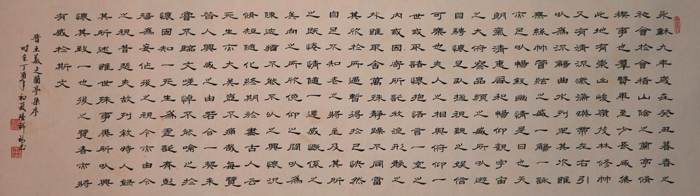 永和九年歲在癸丑暮春之
初會於會稽山陰之蘭亭脩
禊事也羣賢畢至少長咸集
此地有崇山峻嶺茂林脩竹
又有清流激湍暎帶左右引
以為流觴曲水列坐其次雖
無絲竹管絃之盛一觴一詠
亦足以暢敘幽情是日也天
朗氣清惠風和暢仰觀宇宙
之大俯察品類之盛所以遊
目騁懷足以極視聽之娛信
可樂也夫人之相與俯仰一
世或取諸懷抱悟言一室之
內或因寄所託放浪形骸之
外雖取舍萬殊靜躁不同當
其欣於所遇暫得於己快然
自足不知老之將至及其所
之既倦情隨事遷感慨係之
矣向之所欣俛仰之間以為
陳迹猶不能不以之興懷況
脩短隨化終期於盡古人云
死生亦大矣豈不痛哉每覽
昔人興感之由若合一契未
嘗不臨文嗟悼不能喻之於
懷固知一死生為虛誕齊彭
殤為妄作後之視今亦由今
之視昔悲夫故列敘時人錄
其所述雖世殊事異所以興
懷其致一也後之覽者亦將
有感於斯文
晉王羲之蘭亭集序
時在丁酉年初夏